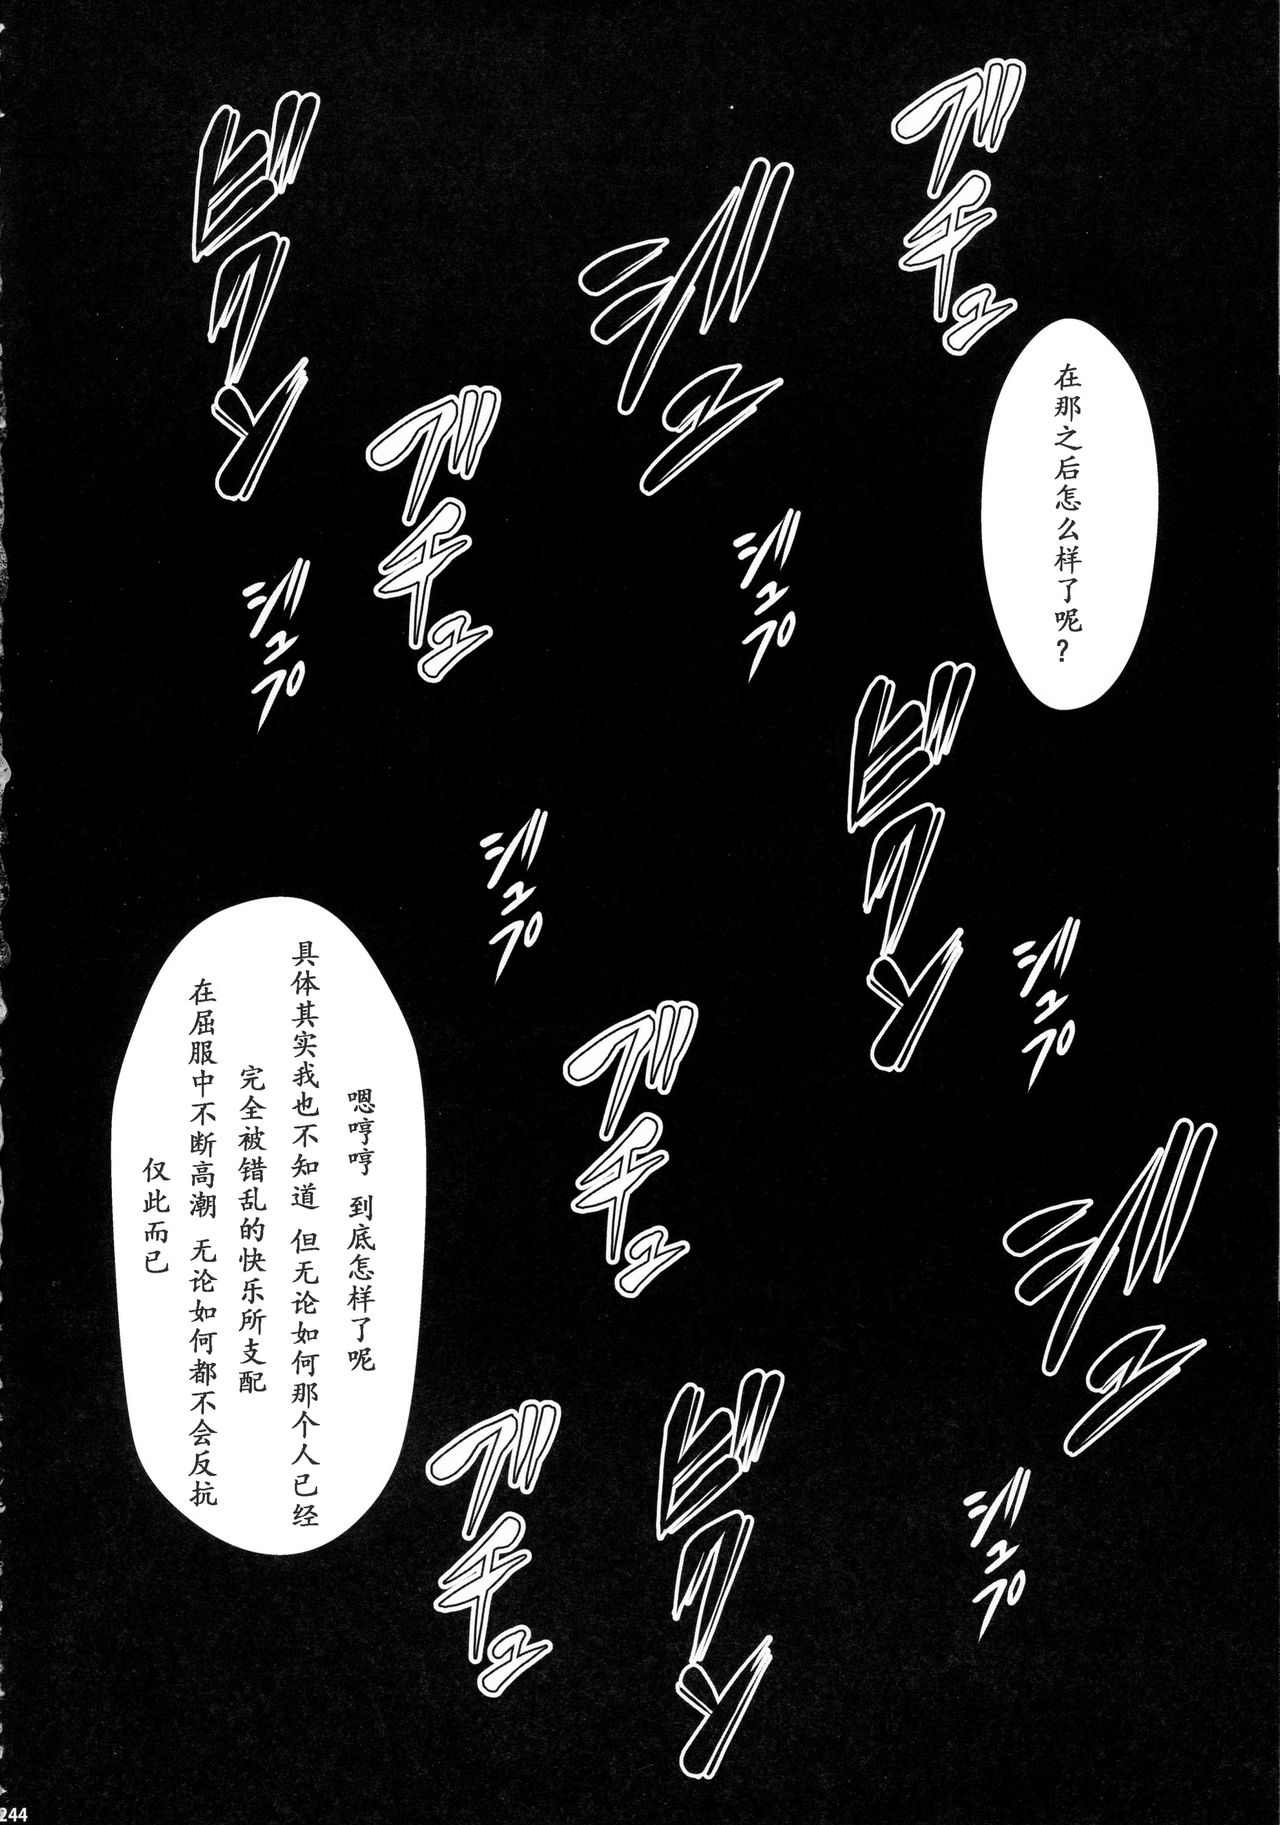 ゲチュ
ジュ
ビクン
在那之后怎么样了呢？
ゲチュ
ジュプ
ジュプ
ビクン
ジュプ
ジュプ
嗯哼哼 到底怎样了呢
具体其实我也不知道 但无论如何那个人已经
完全被错乱的快乐所支配
在屈服中不断高潮 无论如何都不会反抗
仅此而已
ゲチュ
ジュ
ビクン
ゲチュ
ジュプ
244